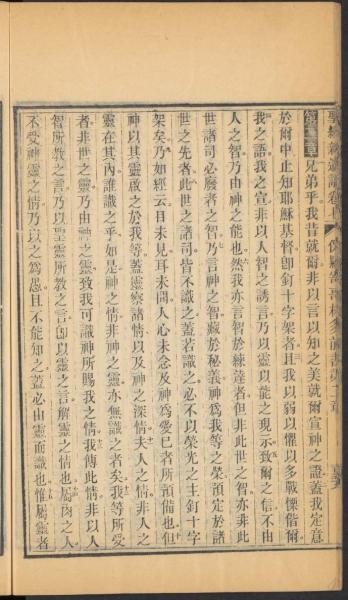 第二章兄弟乎我昔就爾非以言以知之美就爾宣神之證蓋我定意
於爾中止知耶穌基督卽釘十字架者且我以弱以懼以多戰慄偕爾
我之語我之宣非以人智之誘言乃以靈以能之現示致爾之信不由
人之智乃由神之能也然我亦言智於練達者但非此世之智亦非此
世諸司必廢者之智乃言神之智藏於秘義神爲我等之榮預定於諸
世之先者此世之諸司皆不識之蓋若識之必不以榮光之主釘十字
架矣乃如經云目未見耳未聞人心未念及神爲愛已者所預備也但
神以其靈啟之於我等蓋靈察諸情以及神之深情夫人之情非人之
靈在其內誰識之乎如是神之情非神之靈亦無識之者矣我等所受
者非世之靈乃由神之靈致我可識神所賜我之情我傳此情非以人
智所教之言乃以聖靈所教之言卽以靈之言解靈之情也屬肉之人
不受神靈之情乃以之爲愚且不能知之蓋必由靈而識也惟屬靈者